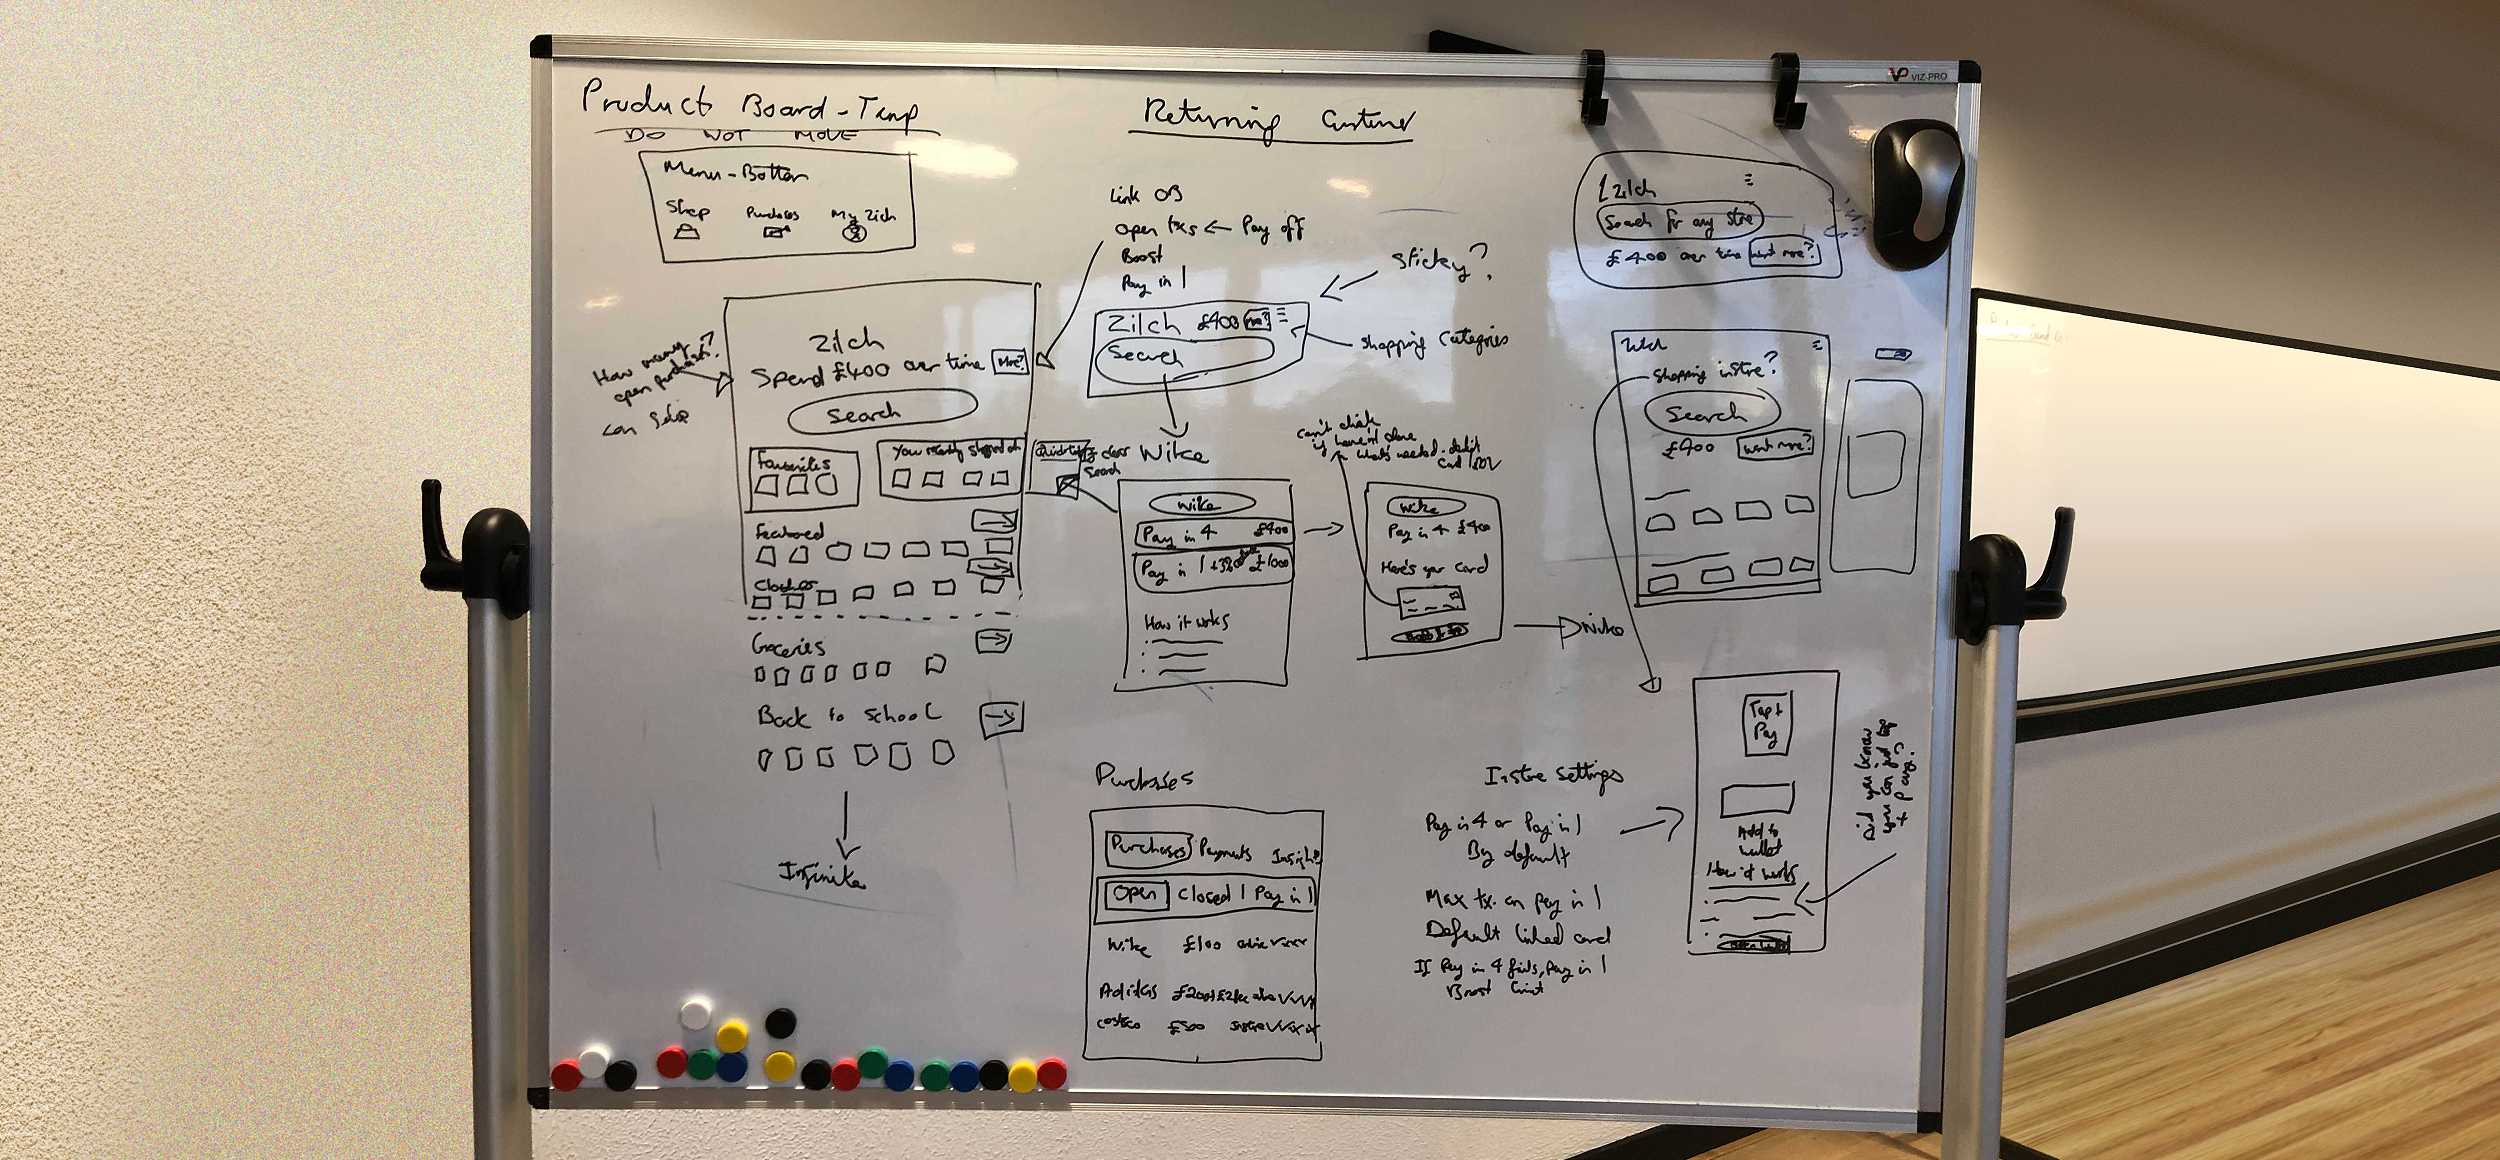 VP VIZ-PRO
Product Board - Temp
DO NOT MOVE
Menu - Bottom
Shop Purchases My Zilch
How many
open purchases?
can
Zilch
Spend £400 over time More?
Search
Favourites
You recently shopped at
Featured
Clothes
Groceries
Back to School
Infinite
Returning Customer
Link OB
Open txs ← Pay off
Boost
Pay in 1
Sticky?
Zilch £400 more?
Search
Shopping Categories
Wike
Search
Wike
Pay in 4 £400
Pay in 1 £1000
How it works
can't click
if haven't done
what's needed - debit
card
Wike
Pay in 4 £400
Here's your card
Wike
Zilch
Search for any store
£400 over time want more?
Shopping instore?
Search
£400 want more?
Purchases
Purchases Payments Insights
Open Closed Pay in 1
Wike £100
Adidas £200
Costco £500
Instore settings
Pay in 4 or Pay in 1
By default
Max tx. on pay in 1
Default linked card
If Pay in 4 fails, pay in 1
Boost limit
Tap +
Pay
Add to
wallet
How it works
Did you know
you can just tap
+ pay?